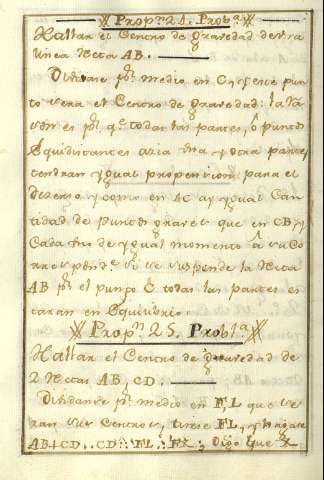 Propn. 24. Proba.
Hallar el Centro de gravedad de vna
linea Recta AB.
Dividase pr. medio en C, y este pun
to sera el Centro de gravedad: la ra
zon es pr. qe. todas las partes, ô puntos
Equidistantes azia vna y otra parte,
tendran ygual propension para el
descenso, y como en AC ay ygual can
tidad de puntos graves que en CB, y
cada vno de ygual momento â su Co
rrespondte. si se suspende la Recta
AB pr. el punto C todas las partes es
taran en Equilibrio.
Propn. 25. Probla.
Hallar el Centro de gravedad de
2 Rectas AB, CD.
Dividanse pr. medio en F, L que se
ran sus Centros, tirese FL, y hagase
AB+CD..CD:: FL: FX; Digo que X